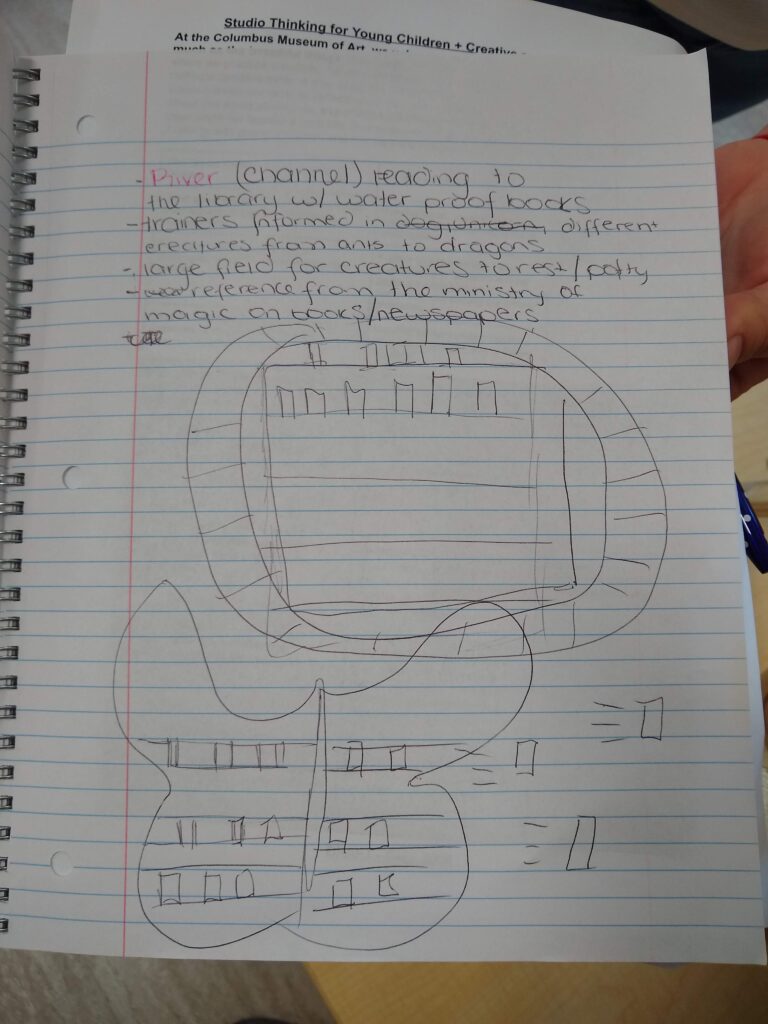 Studio Thinking for Young Children + Creative
At the Columbus Museum of Art, we
- River (channel) reading to
the library w/ water proof books
- trainers informed in dog, unicorn, different
creatures from ants to dragons
- large field for creatures to rest/potty
- reference from the ministry of
magic on books/newspapers